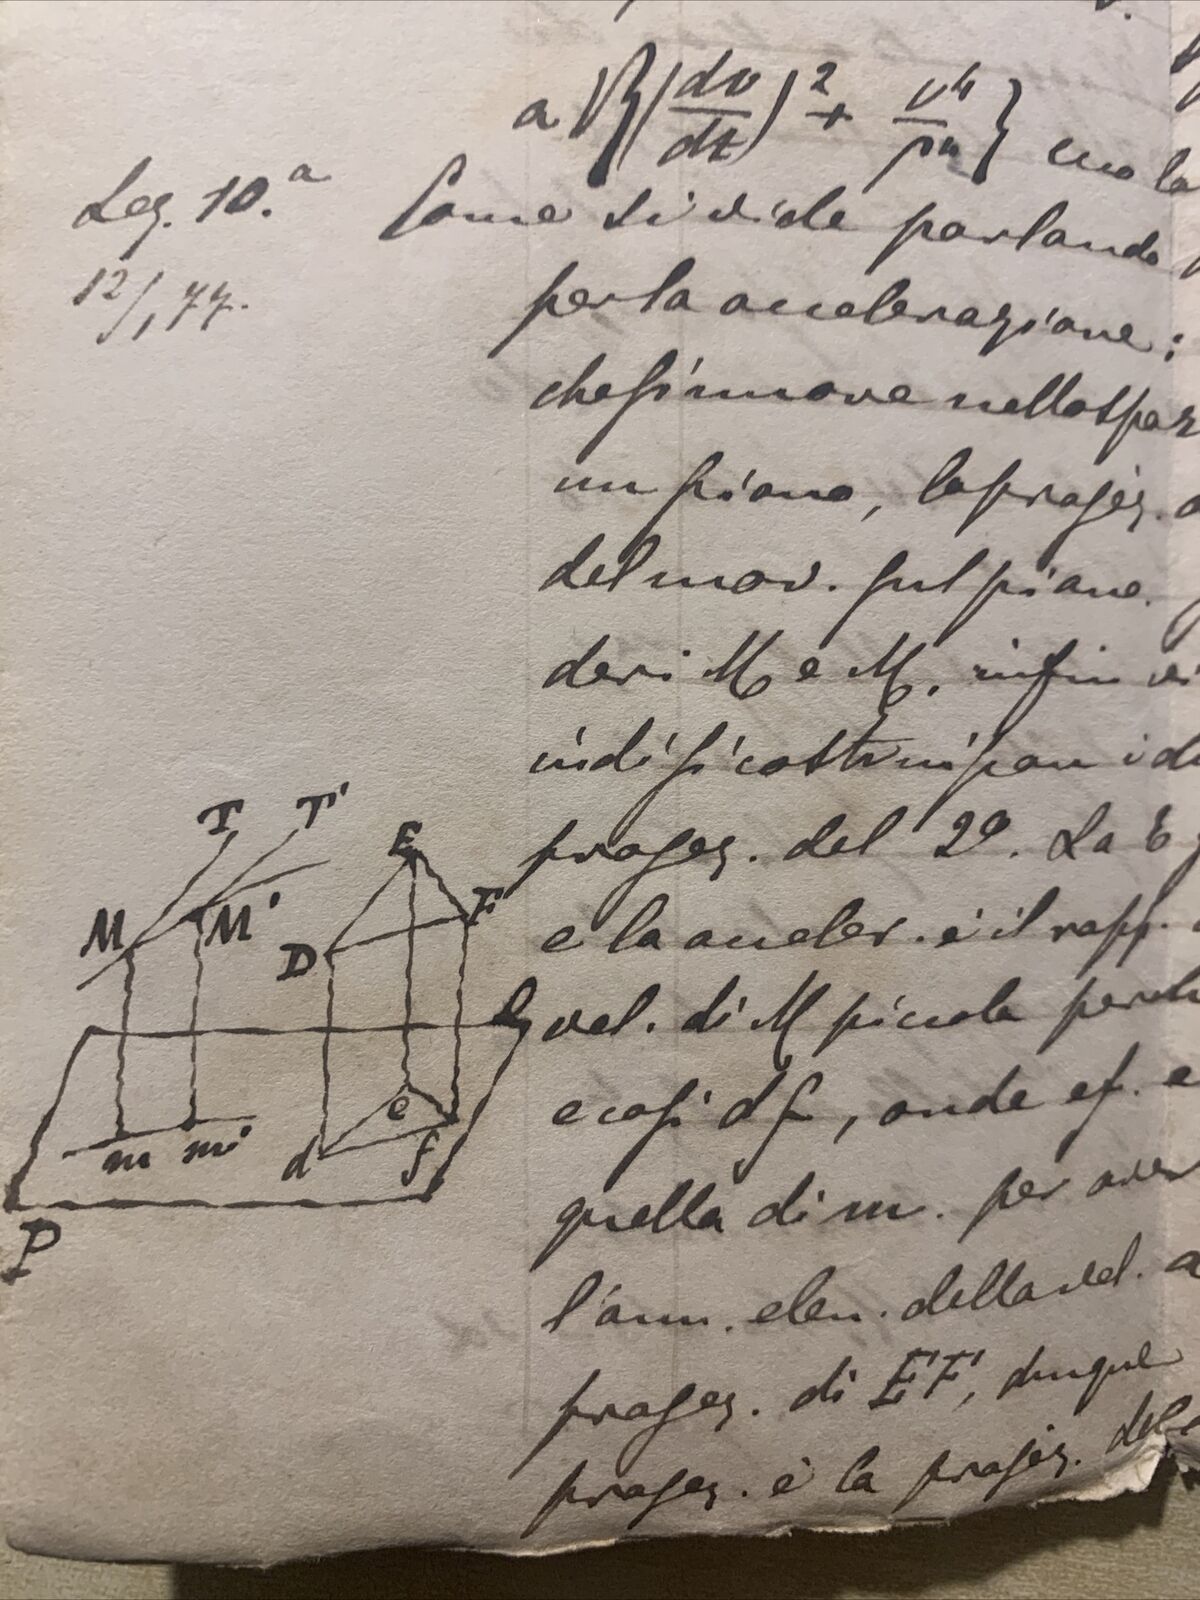 a √{(dv/dt)² + v⁴/ρ²}
Lez. 10.ª
12/1 77.
Come si vide parlando
per la accelerazione;
che si muove nello spaz
un piano, la projez.
del mov. sul piano.
deri M e M,
indi si costruiscan i d
projez. del 2º. La
e la acceler. è il rapp.
vel. di M piccola perch
e così df, onde ef. e
quella di m. per aver
l'aum. elem. della vel. a
projez. di E'F', dunque
projez. è la projez. del
T T'
E
M M'
F
D
Q
e
m m'
d f
P